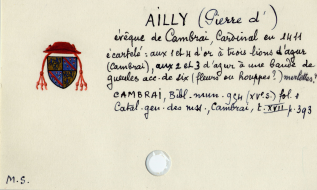 AILLY (Pierre d')
évêque de Cambrai, Cardinal en 1411
écartelé : aux 1 et 4 d'or à trois lions d'azur
(Cambrai), aux 2 et 3 d'azur à une bande de
gueules acc. de six (fleurs ou houppes ?) merlettes.
CAMBRAI, Bibl. mun. 954 (XVe s.) fol. 1
Catal. gen. des mss., Cambrai, t. XVII p. 393
M.S.